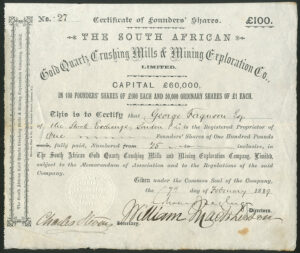 No. 27 Certificate of Founders' Shares. £100.
THE SOUTH AFRICAN
Gold Quartz Crushing Mills & Mining Exploration Co.,
LIMITED.
CAPITAL £60,000,
IN 100 FOUNDERS' SHARES OF £100 EACH AND 50,000 ORDINARY SHARES OF £1 EACH.
This is to Certify that George Ferguson Esq
of the Stock Exchange, London is the Registered Proprietor of
One Founders' Shares of One Hundred Pounds
fully paid, Numbered from 75 to inclusive, in
The South African Gold Quartz Crushing Mills and Mining Exploration Company, Limited,
subject to the Memorandum of Association and to the Regulations of the said
Company.
Given under the Common Seal of the Company,
the 17th of February 1889
Directors.
Charles
Secretary.
William